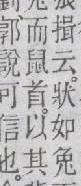 張揖云。狀如兔
而鼠首。以其
郭說可信也。